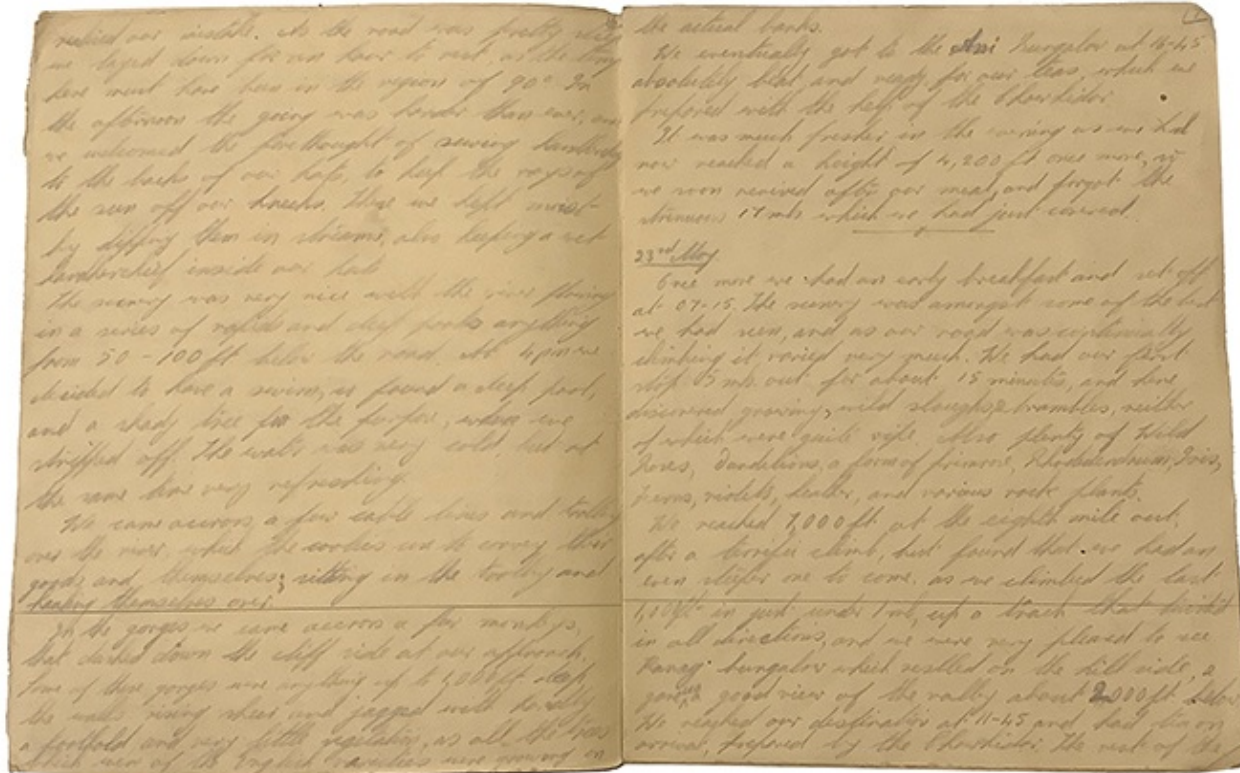 realised our mistake. As the road was pretty
we layed down for an hour to rest, as the temp
here must have been in the region of 90° In
the afternoon the going was harder than ever, and
we welcomed the forethought of sewing handkerchiefs
to the backs of our hats, to keep the rays of
the sun off our necks. These we kept moist
by dipping them in streams, also keeping a wet
handkerchief inside our hats
The scenery was very nice with the river flowing
in a series of rapids and deep pools anything
from 50 - 100 ft below the road. At 4 pm we
decided to have a swim, & found a deep pool,
and a shady tree for the purpose, when we
stripped off. The water was very cold, but at
the same time very refreshing.
We came accross, a few cable lines and trolleys
over the river, which the coolies use to convey their
goods and themselves; sitting in the trolley and
heaving themselves over.
In the gorges we came accross a few monkeys,
that dashed down the cliff side at our approach.
Some of these gorges were anything up to 1,000 ft deep
the walls rising sheer and jagged with hardly
a foothold and very little vegetation, as all the trees
which were of the English varieties were growing on
the actual banks.
We eventually got to the Ani Bungalow at 16-45
absolutely beat and ready for our teas, which we
prepared with the help of the Chowkidor.
It was much fresher in the evening as we had
now reached a height of 4,200 ft once more, &
we soon revived after our meal, and forgot the
strenuous 17 mls which we had just covered.
23rd May
Once more we had an early breakfast and set off
at 07-15. The scenery was amongst some of the best
we had seen, and as our road was continually
climbing it varied very much. We had our first
stop 5 mls out for about 15 minutes, and here
discovered growing, wild & brambles, neither
of which were quite ripe. Also plenty of Wild
Roses, Dandelions, a form of primrose, Rhododendrum, Iris,
Ferns, violets, heather, and various rock plants.
We reached 7,000 ft at the eighth mile out,
after a terrific climb, but found that we had an
even steeper one to come, as we climbed the last
ft in just under 1 ml, up a track that twisted
in all directions, and we were very pleased to see
bungalow which nestled on the hill side, &
good view of the valley about 2,000 ft below
We reached our destination at 11-45 and had tea on
arrival, prepared by the Chowkidor. The rest of the